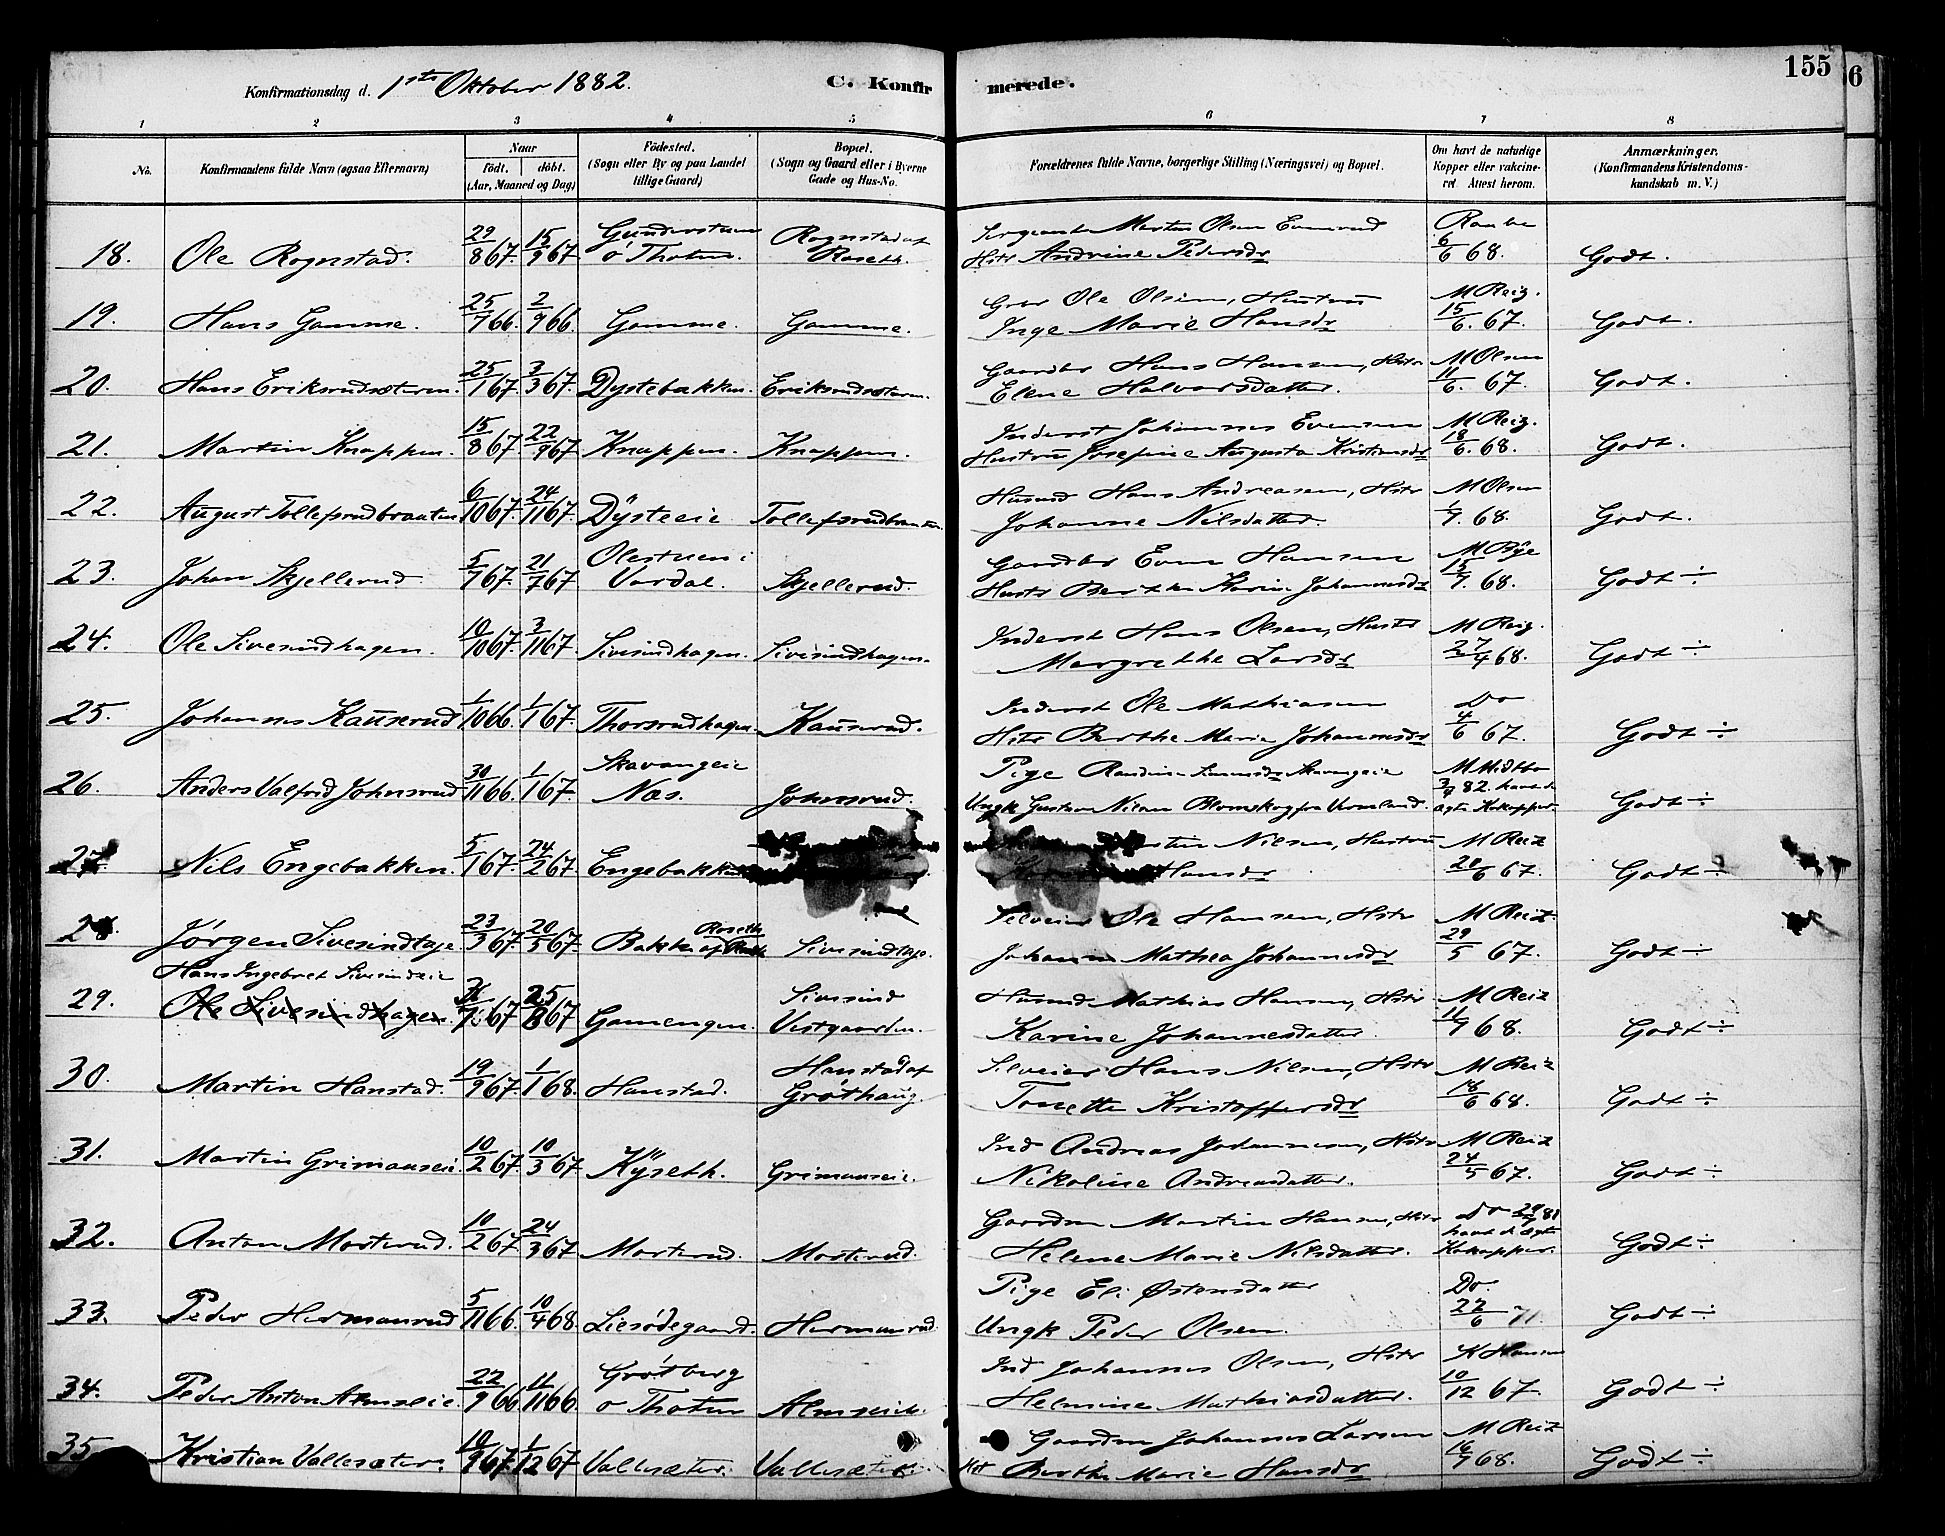 Konfirmationsdag d. 1ste Oktober 1882.
C. Konfirmerede.
155
6
1 2 3 4 5 6 7 8
No.
Konfirmandens fulde Navn (ogsaa Efternavn)
Naar
født. døbt.
(Aar, Maaned og Dag)
Fødested.
(Sogn eller By og paa Landet
tillige Gaard)
Bopæl.
(Sogn og Gaard eller i Byerne
Gade og Hus-No.
Forældrenes fulde Navne, borgerlige Stilling (Næringsvei) og Bopæl.
Om havt de naturlige
Kopper eller vakcine-
ret. Attest herom.
Anmærkninger.
(Konfirmandens Kristendoms-
kundskab m. V.)
18. Ole Rognstad. 29/8 67. 15/9 67 ø Thoten. Rognstad af Roseth. Sergeant Martin Olsen
Hstr Andrine Pedersdr 6/6 68. Godt.
19. Hans Gamme. 25/7 66. 2/9 66. Gamme. Gamme. Ole Olsen, Hustru M Reiz.
Inge Marie Hansdr 15/6. 67. Godt.
20. Hans Eriksrudsæteren. 25/1 67. 3/3 67. Dystebakken. Eriksrudsæteren. Gaardbr Hans Hansen, Hstr M Olsen
Elene Halvorsdatter. 11/6. 67. Godt.
21. Martin Knappen. 15/8 67. 22/9 67 Knappen. Knappen. Inderst Johannes Evensen M Reiz.
Hustru Josefine Augusta Kristiansdr 18/6. 68. Godt.
22. August Tollefsrudbraaten 6/10 67. 24/11 67. Dÿsteeie Tollefsrudbraaten Husmd Hans Andreasen, Hstr M Olsen
Johanne Nilsdatter. 68. Godt.
23. Johan Skjellerud 5/7 67. 21/7 67 Olestuen i Vardal. Skjellerud. Gaardbr Even Hansen M Bÿe
Hustr Berthe Karine Johannesdr 15/7. 68. Godt ÷
24. Ole Sivesindhagen. 10/10 67. 3/11 67. Sivesindhagen. Sivesindhagen. Inderst Hans Olsen, Hustr M Reiz.
Margrethe Larsdr 27/4 68. Godt ÷
25. Johannes Kauserud 1/10 66. 1/1 67. Thorsrudhagen. Kauserud. Inderst Ole Mathiasen Do
Hstr Berthe Marie Johannesdr 4/6 67. Godt ÷
26. Anders Valfrid Johnsrud 30/11 66. 1/1 67. Skavangeie Næs. Johnsrud. Pige Randine Simensdr Skavangeie
Ungk Gustav Nilsen Blomskog fra Vermland. 82. havt de ægte Kokopper. Godt ÷
27. Nils Engebakken. 5/1 67. 24/2 67. Engebakken Nilsen, Hustru M Reiz
Hansdr 20/6 67. Godt ÷
28. Jørgen Sivesindtaje 23/3 67. 20/5 67. Bakke af Roseth Sivesindtaje. Selveier Ole Hansen, Hstr M Reiz.
Johanne Mathea Johannesdr 29/5 67. Godt ÷
29. Hans Ingebret Sivesindeie
Ole Sivesindhagen. 67 25/8 67 Gamengen. Sivesind Vestgaarden. Husmd Mathias Hansen, Hstr M Reiz
Karine Johannesdatter. 11/7 68. Godt ÷
30. Martin Hanstad. 19/9 67. 1/1 68. Hanstad. Hanstad af Grøthaug. Selveier Hans Nilsen, Hstr M Reiz
Tonette Kristoffersdr 18/6 68. Godt ÷
31. Martin Grimanseie. 10/2 67. 10/3 67. Kÿseth. Grimanseie. Ind Andreas Johannesen, Hstr M Reiz
Nikoline Andreasdatter. 24/5 67. Godt ÷
32. Anton Morterud. 10/2 67 24/3 67 Morterud. Morterud. Gaardm Martin Hansen, Hstr Do havt de ægte
Helene Marie Nilsdatter. Kokopper. Godt ÷
33. Peder Hermanrud 5/11 66. 10/4 68. Liesødegaard. Hermanrud. Pige Eli Østensdatter Do.
Ungk Peder Olsen. 22/6 71. Godt ÷
34. Peder Anton Almseie. 22/9 66 11/11 66. Grøtberg ø Thoten Almseie. Ind Johannes Olsen, Hstr K Hansen
Helmine Mathiasdatter. 10/12 67. Godt ÷
35 Kristian Vallesæter. 10/9 67. 1/12 67 Vallesæter. Vallesæter. Gaardm Johannes Larsen M Reiz
Hst Berthe Marie Hansdr 16/7 68. Godt ÷